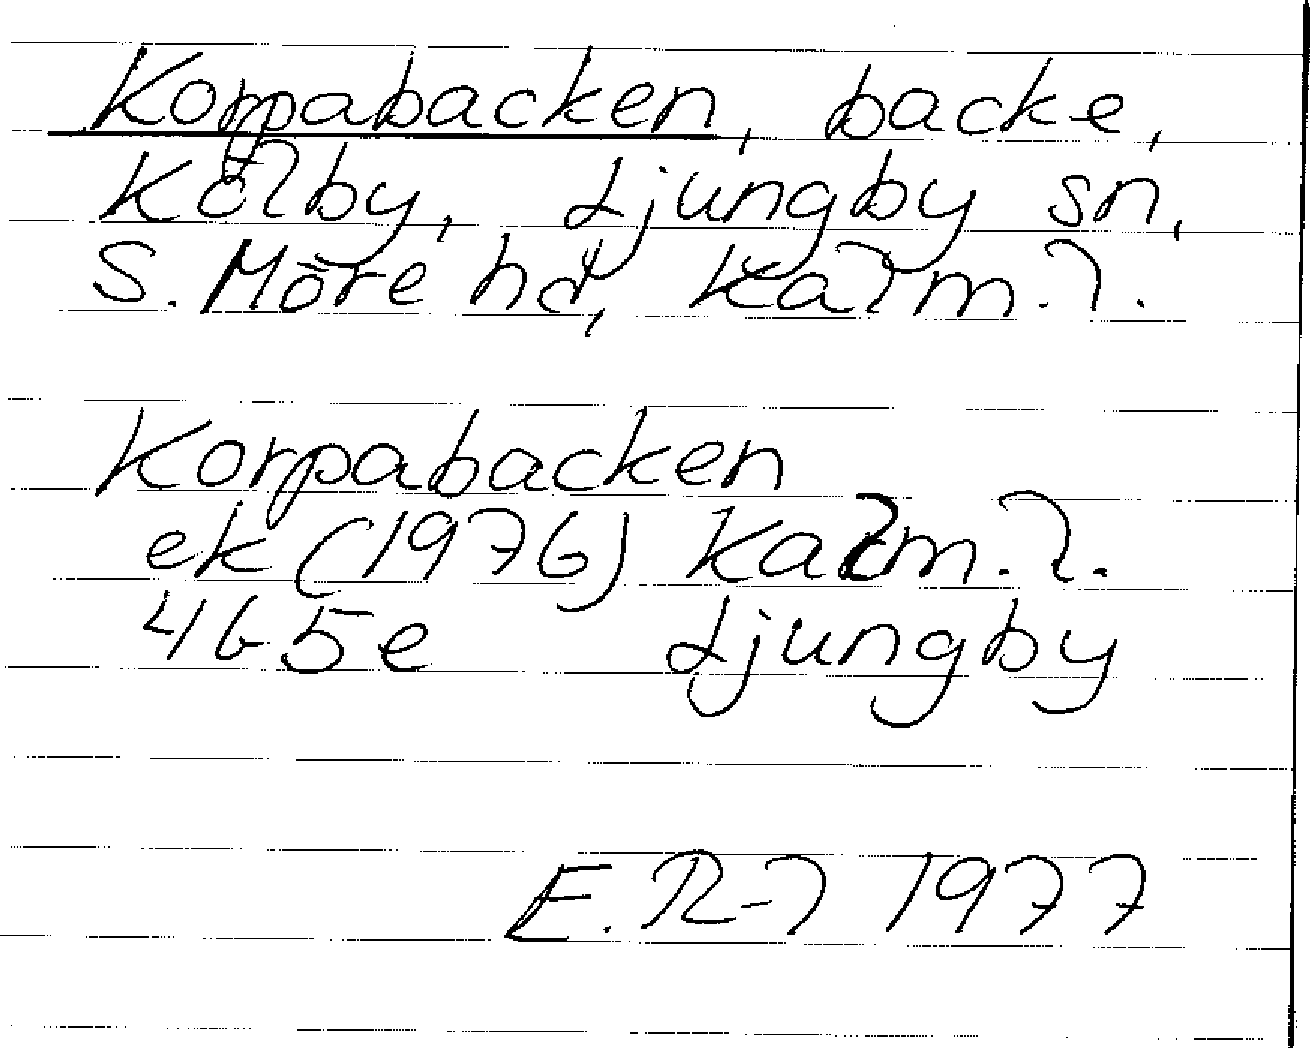 Korpabacken, backe,
Kölby, Ljungby sn,
S. Möre hd, Kalm. l.
Korpabacken
ek (1976) Kalm. l.
4G 5e Ljungby
E. R-l 1977